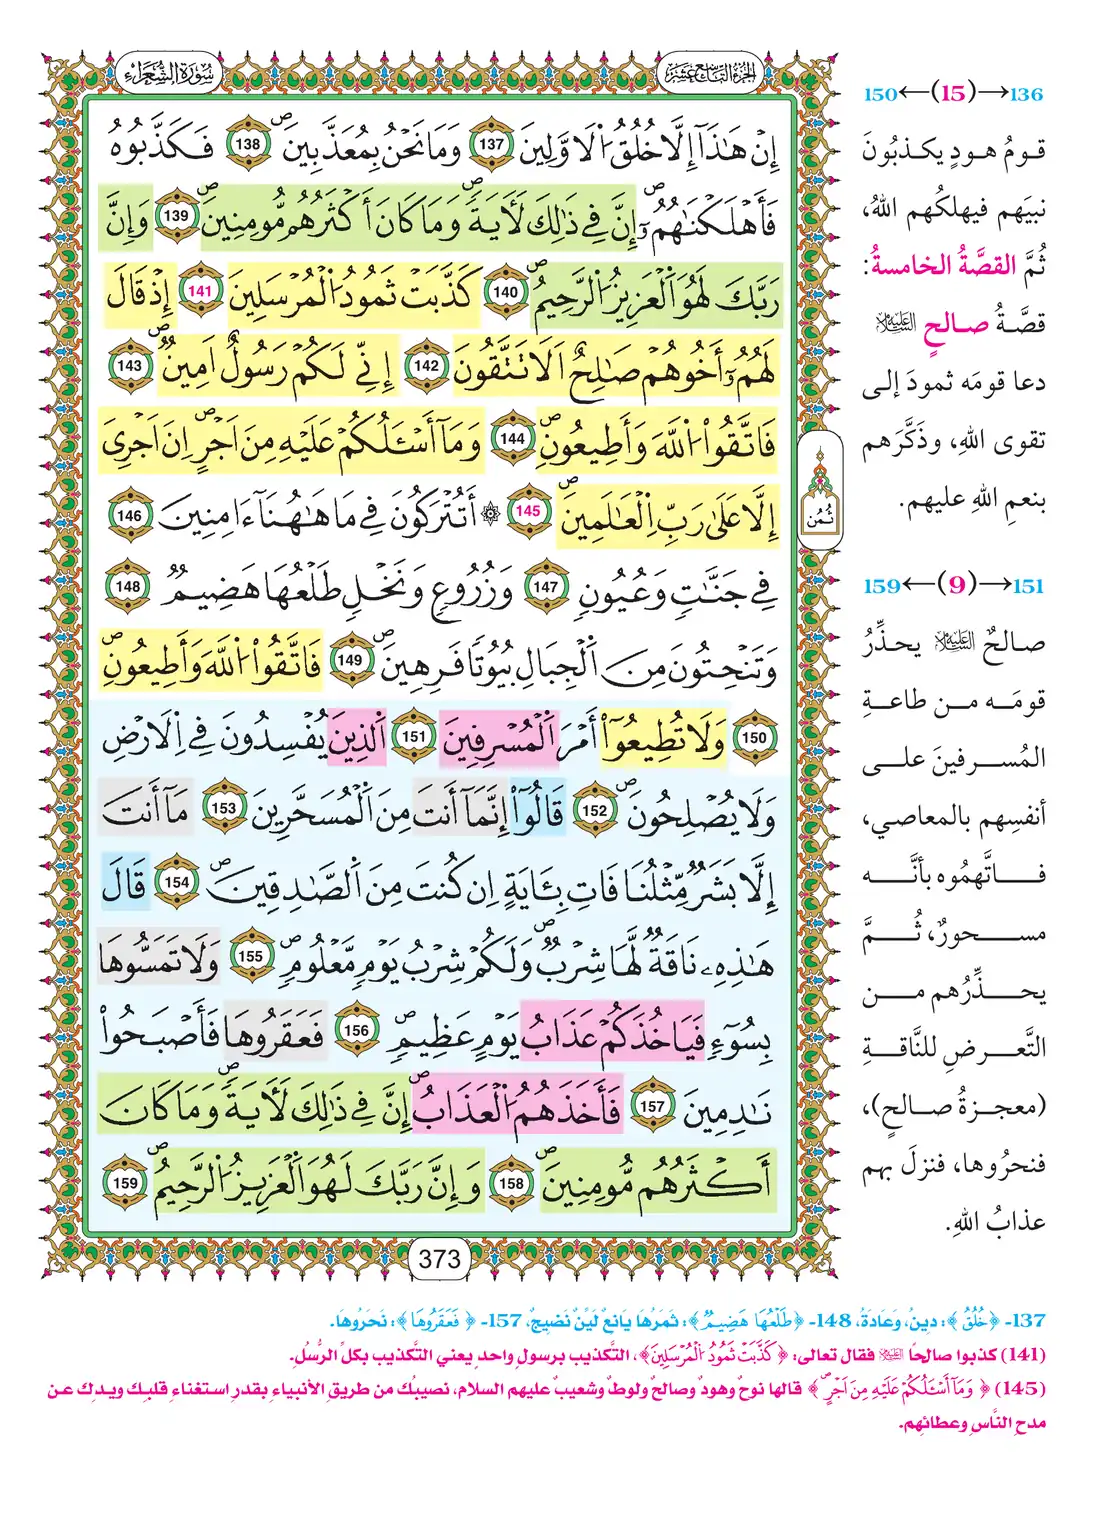 سُورَةُ الشُّعَرَاءِ
الجزء التاسع عشر
إِنْ هَٰذَآ إِلَّا خُلُقُ اُ۬لَاوَّلِينَ 137 وَمَا نَحْنُ بِمُعَذَّبِينَۖ 138 فَكَذَّبُوهُ
فَأَهْلَكْنَٰهُمُۥٓۖ إِنَّ فِي ذَٰلِكَ لَأٓيَةٗۖ وَمَا كَانَ أَكْثَرُهُم مُّومِنِينَۖ 139 وَإِنَّ
رَبَّكَ لَهُوَ اَ۬لْعَزِيزُ اُ۬لرَّحِيمُۖ 140 كَذَّبَتْ ثَمُودُ اُ۬لْمُرْسَلِينَ 141 إِذْ قَالَ
لَهُمُۥٓ أَخُوهُمْ صَٰلِحٌ اَلَا تَتَّقُونَ 142 إِنِّي لَكُمْ رَسُولٌ اَمِينٞۖ 143
فَاتَّقُواْ اُ۬للَّهَ وَأَطِيعُونِۖ 144 وَمَآ أَسْـَٔلُكُمْ عَلَيْهِ مِنَ اَجْرٍۖ اِنَ اَجْرِيَ
إِلَّا عَلَىٰ رَبِّ اِ۬لْعَٰلَمِينَۖ 145 ۞ أَتُتْرَكُونَ فِي مَا هَٰهُنَآ ءَامِنِينَ 146
فِي جَنَّٰتٖ وَعُيُونٖ 147 وَزُرُوعٖ وَنَخْلٖ طَلْعُهَا هَضِيمٞ 148
وَتَنْحِتُونَ مِنَ اَ۬لْجِبَالِ بُيُوتاٗ فَرِهِينَۖ 149 فَاتَّقُواْ اُ۬للَّهَ وَأَطِيعُونِۖ
150 وَلَا تُطِيعُوٓاْ أَمْرَ اَ۬لْمُسْرِفِينَ 151 اَ۬لذِينَ يُفْسِدُونَ فِي اِ۬لَارْضِ
وَلَا يُصْلِحُونَۖ 152 قَالُوٓاْ إِنَّمَآ أَنتَ مِنَ اَ۬لْمُسَحَّرِينَ 153 مَآ أَنتَ
إِلَّا بَشَرٞ مِّثْلُنَا فَاتِ بِـَٔايَةٍ اِن كُنتَ مِنَ اَ۬لصَّٰدِقِينَۖ 154 قَالَ
هَٰذِهِۦ نَاقَةٞ لَّهَا شِرْبٞۖ وَلَكُمْ شِرْبُ يَوْمٖ مَّعْلُومٖۖ 155 وَلَا تَمَسُّوهَا
بِسُوٓءٖ فَيَاخُذَكُمْ عَذَابُ يَوْمٍ عَظِيمٖۖ 156 فَعَقَرُوهَا فَأَصْبَحُواْ
نَٰدِمِينَ 157 فَأَخَذَهُمُ اُ۬لْعَذَابُۖ إِنَّ فِي ذَٰلِكَ لَأٓيَةٗۖ وَمَا كَانَ
أَكْثَرُهُم مُّومِنِينَۖ 158 وَإِنَّ رَبَّكَ لَهُوَ اَ۬لْعَزِيزُ اُ۬لرَّحِيمُۖ 159
ثُمُن
373
136→(15)←150
قومُ هودٍ يكذبُونَ
نبيَهم فيهلكُهم اللهُ،
ثُمَّ القصَّةُ الخامسةُ:
قصَّةُ صالحٍ عليه السلام
دعا قومَه ثمودَ إلى
تقوى اللهِ، وذَكَّرَهم
بنعمِ اللهِ عليهم.
151→(9)←159
صالحٌ عليه السلام يحذِّرُ
قومَه من طاعةِ
المُسرفينَ على
أنفسِهم بالمعاصي،
فاتَّهمُوه بأنَّه
مسحورٌ، ثُمَّ
يحذِّرُهم من
التَّعرضِ للنَّاقةِ
(معجزةُ صالحٍ)،
فنحرُوها، فنزلَ بهم
عذابُ اللهِ.
137- ﴿خُلُقُ﴾: دينُ، وَعَادَةُ، 148- ﴿طَلْعُهَا هَضِيمٞ﴾: ثَمَرُهَا يَانِعٌ لَيِّنٌ نَضِيجٌ، 157- ﴿فَعَقَرُوهَا﴾: نَحَرُوهَا.
(141) كذبوا صالحًا عليه السلام فقال تعالى: ﴿كَذَّبَتْ ثَمُودُ اُ۬لْمُرْسَلِينَ﴾، التَّكذيب برسول واحدٍ يعني التَّكذيب بكلِّ الرُّسلِ.
(145) ﴿وَمَآ أَسْـَٔلُكُمْ عَلَيْهِ مِنَ اَجْرٍۖ﴾ قالها نوحٌ وهودٌ وصالحٌ ولوطٌ وشعيبٌ عليهم السلام، نصيبُك من طريقِ الأنبياءِ بقدرِ استغناءِ قلبِك ويدِك عن
مدحِ النَّاسِ وعطائِهم.